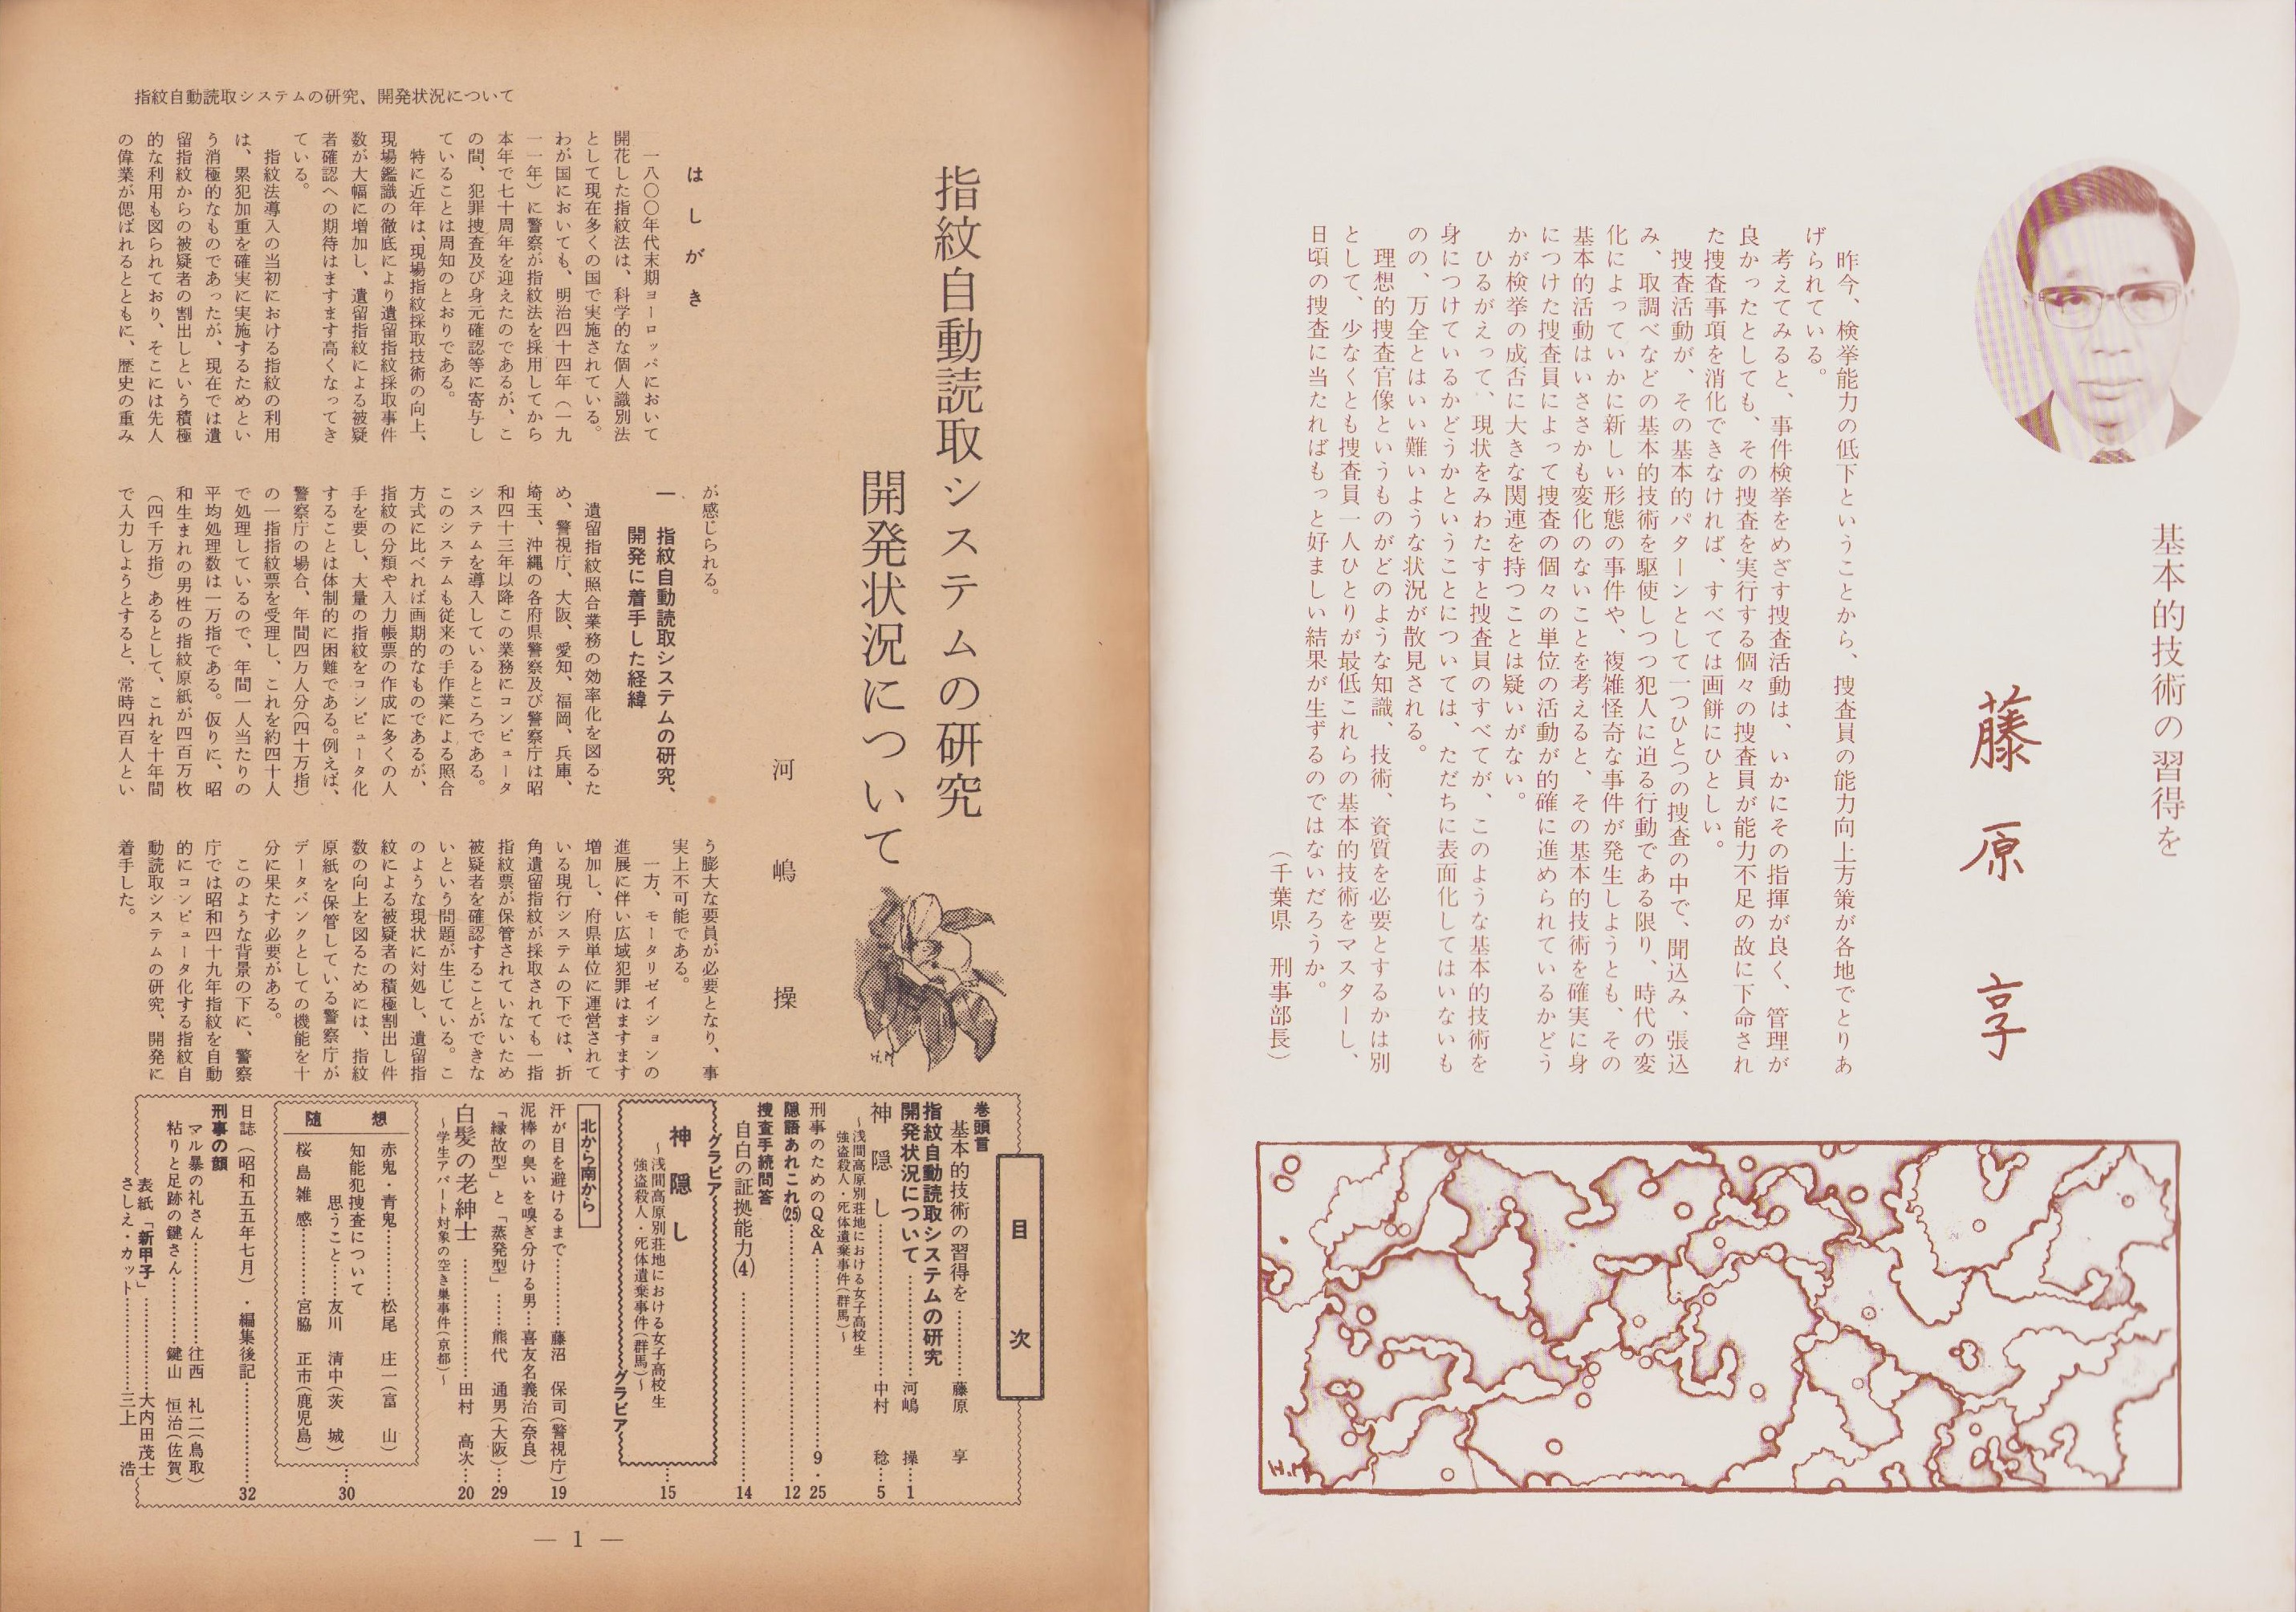 基本的技術の習得を
藤原享
昨今、検挙能力の低下ということから、捜査員の能力向上方策が各地でとりあ
げられている。
考えてみると、事件検挙をめざす捜査活動は、いかにその指揮が良く、管理が
良かったとしても、その捜査を実行する個々の捜査員が能力不足の故に下命され
た捜査事項を消化できなければ、すべては画餅にひとしい。
捜査活動が、その基本的パターンとして一つひとつの捜査の中で、聞込み、張込
み、取調べなどの基本的技術を駆使しつつ犯人に迫る行動である限り、時代の変
化によっていかに新しい形態の事件や、複雑怪奇な事件が発生しようとも、その
基本的活動はいささかも変化のないことを考えると、その基本的技術を確実に身
につけた捜査員によって捜査の個々の単位の活動が的確に進められているかどう
かが検挙の成否に大きな関連を持つことは疑いがない。
ひるがえって、現状をみわたすと捜査員のすべてが、このような基本的技術を
身につけているかどうかということについては、ただちに表面化してはいないも
のの、万全とはいい難いような状況が散見される。
理想的捜査官像というものがどのような知識、技術、資質を必要とするかは別
として、少なくとも捜査員一人ひとりが最低これらの基本的技術をマスターし、
日頃の捜査に当たればもっと好ましい結果が生ずるのではないだろうか。
（千葉県　刑事部長）
指紋自動読取システムの研究、開発状況について
指紋自動読取システムの研究
開発状況について
河嶋操
はしがき
一八〇〇年代末期ヨーロッパにおいて
開花した指紋法は、科学的な個人識別法
として現在多くの国で実施されている。
わが国においても、明治四十四年（一九
一一年）に警察が指紋法を採用してから
本年で七十周年を迎えたのであるが、こ
の間、犯罪捜査及び身元確認等に寄与し
ていることは周知のとおりである。
特に近年は、現場指紋採取技術の向上、
現場鑑識の徹底により遺留指紋採取事件
数が大幅に増加し、遺留指紋による被疑
者確認への期待はますます高くなってき
ている。
指紋法導入の当初における指紋の利用
は、累犯加重を確実に実施するためとい
う消極的なものであったが、現在では遺
留指紋からの被疑者の割出しという積極
的な利用も図られており、そこには先人
の偉業が偲ばれるとともに、歴史の重み
が感じられる。
一　指紋自動読取システムの研究、
開発に着手した経緯
遺留指紋照合業務の効率化を図るた
め、警視庁、大阪、愛知、福岡、兵庫、
埼玉、沖縄の各府県警察及び警察庁は昭
和四十三年以降この業務にコンピュータ
システムを導入しているところである。
このシステムも従来の手作業による照合
方式に比べれば画期的なものであるが、
指紋の分類や入力帳票の作成に多くの人
手を要し、大量の指紋をコンピュータ化
することは体制的に困難である。例えば、
警察庁の場合、年間四万人分（四十万指）
の一指指紋票を受理し、これを約四十人
で処理しているので、年間一人当たりの
平均処理数は一万指である。仮りに、昭
和生まれの男性の指紋原紙が四百万枚
（四千万指）あるとして、これを十年間
で入力しようとすると、常時四百人とい
う膨大な要員が必要となり、事
実上不可能である。
一方、モータリゼイションの
進展に伴い広域犯罪はますます
増加し、府県単位に運営されて
いる現行システムの下では、折
角遺留指紋が採取されても一指
指紋票が保管されていないため
被疑者を確認することができな
いという問題が生じている。こ
のような現状に対処し、遺留指
紋による被疑者の積極割出し件
数の向上を図るためには、指紋
原紙を保管している警察庁が
データバンクとしての機能を十
分に果たす必要がある。
このような背景の下に、警察
庁では昭和四十九年指紋を自動
的にコンピュータ化する指紋自
動読取システムの研究、開発に
着手した。
目次
巻頭言
基本的技術の習得を…………藤原　享
指紋自動読取システムの研究
開発状況について…………河嶋　操…1
神隠し…………中村　稔…5
～浅間高原別荘地における女子高校生
強盗殺人・死体遺棄事件（群馬）～
刑事のためのQ&A…………9・25
隠語あれこれ(25)…………12
捜査手続問答
自白の証拠能力(4)…………14
グラビア
神隠し
～浅間高原別荘地における女子高校生
強盗殺人・死体遺棄事件（群馬）～
グラビア
…15
北から南から
汗が目を避けるまで…………藤沼　保司（警視庁）…19
泥棒の臭いを嗅ぎ分ける男…喜友名義治（奈良）
「縁故型」と「蒸発型」……熊代　通男（大阪）…29
白髪の老紳士…………田村　高次…20
～学生アパート対象の空き巣事件（京都）～
随想
赤鬼・青鬼…………松尾　庄一（富山）
知能犯捜査について
思うこと……友川　清中（茨城）
桜島雑感…………宮脇　正市（鹿児島）
…30
日誌（昭和五五年七月）・編集後記…………32
刑事の顔
マル暴の礼さん…………往西　礼二（鳥取）
粘りと足跡の鍵さん…………鍵山　恒治（佐賀）
表紙「新甲子」…………大内田茂士
さしえ・カット…………三上　浩
— 1 —